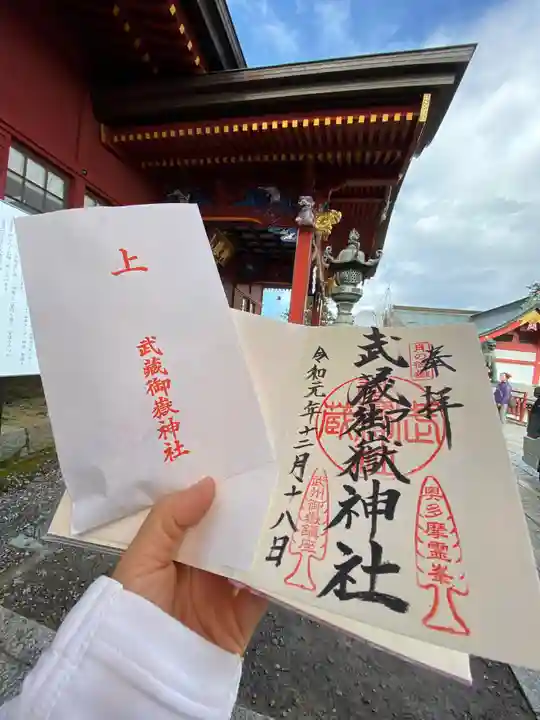 上
武蔵御嶽神社
奉拝
武蔵御嶽神社
令和元年十二月十八日
奥多摩霊峯
武州御嶽鎮座